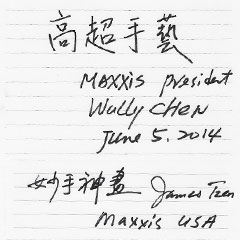 高超手藝
MAXXIS president
Wally CHEN
June 5. 2014
妙手神畫 James Tzen
Maxxis USA